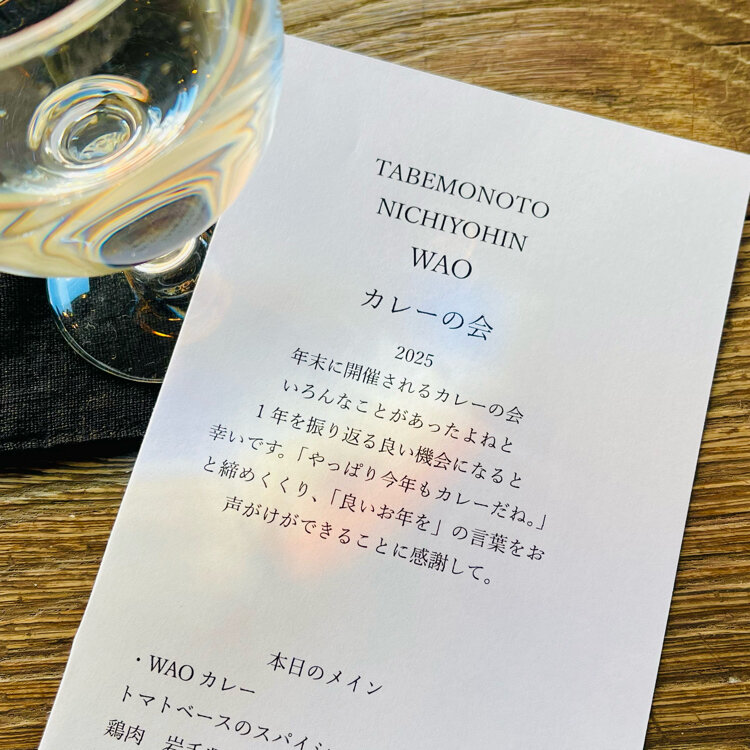 TABEMONOTO
NICHIYOHIN
WAO
カレーの会
2025
年末に開催されるカレーの会
いろんなことがあったよねと
1年を振り返る良い機会になると
幸いです。「やっぱり今年もカレーだね。」
と締めくくり、「良いお年を」の言葉をお
声がけができることに感謝して。
本日のメイン
・WAOカレー
トマトベースのスパイシ
鶏肉 岩手